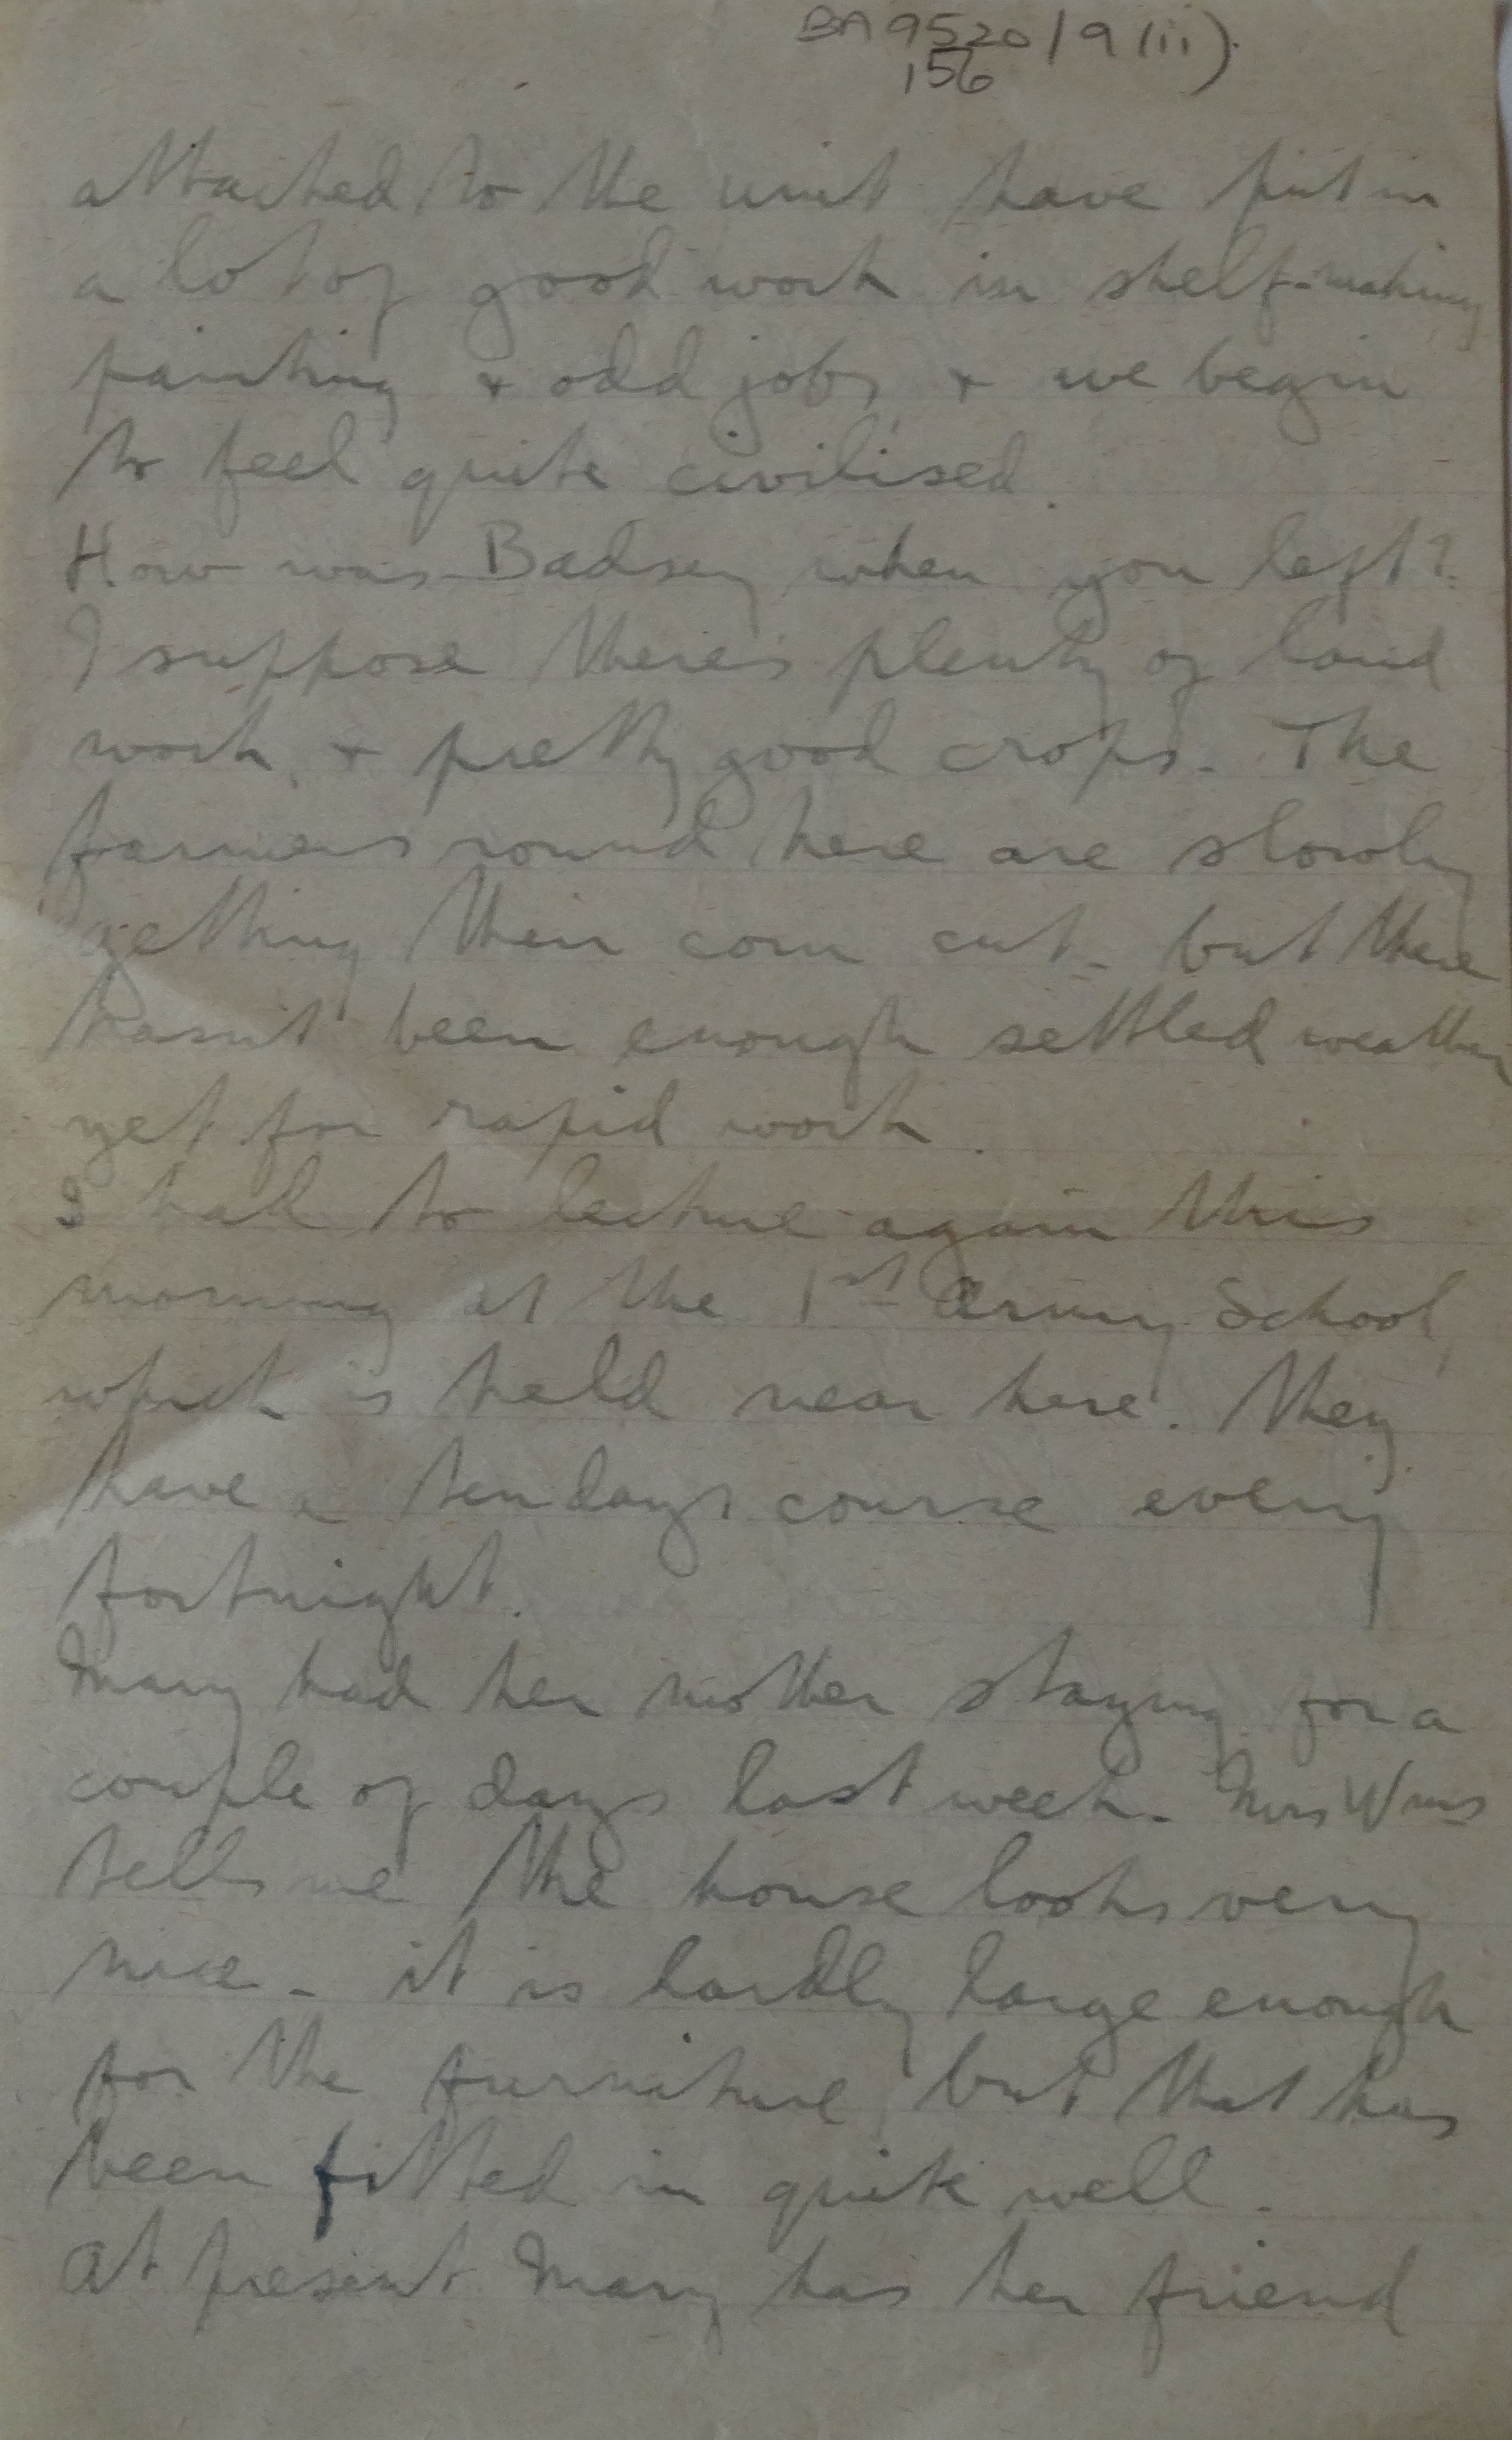 BA 9520/9(ii).
156
attached to the unit have put in
a lot of good work in shelf-making
painting + odd jobs, + we begin
to feel quite civilised.
How was Badsey when you left?
I suppose there's plenty of land
work, + pretty good crops. The
farmers round here are slowly
getting their corn cut - but there
hasn't been enough settled weather
yet for rapid work.
I had to lecture again this
morning at the 1st Army School,
which is held near here. They
have a ten days course every
fortnight.
Mary had her mother staying for a
couple of days last week. Mrs Wms
tells me the house looks very
nice - it is hardly large enough
for the furniture, but that has
been fitted in quite well.
At present Mary has her friend